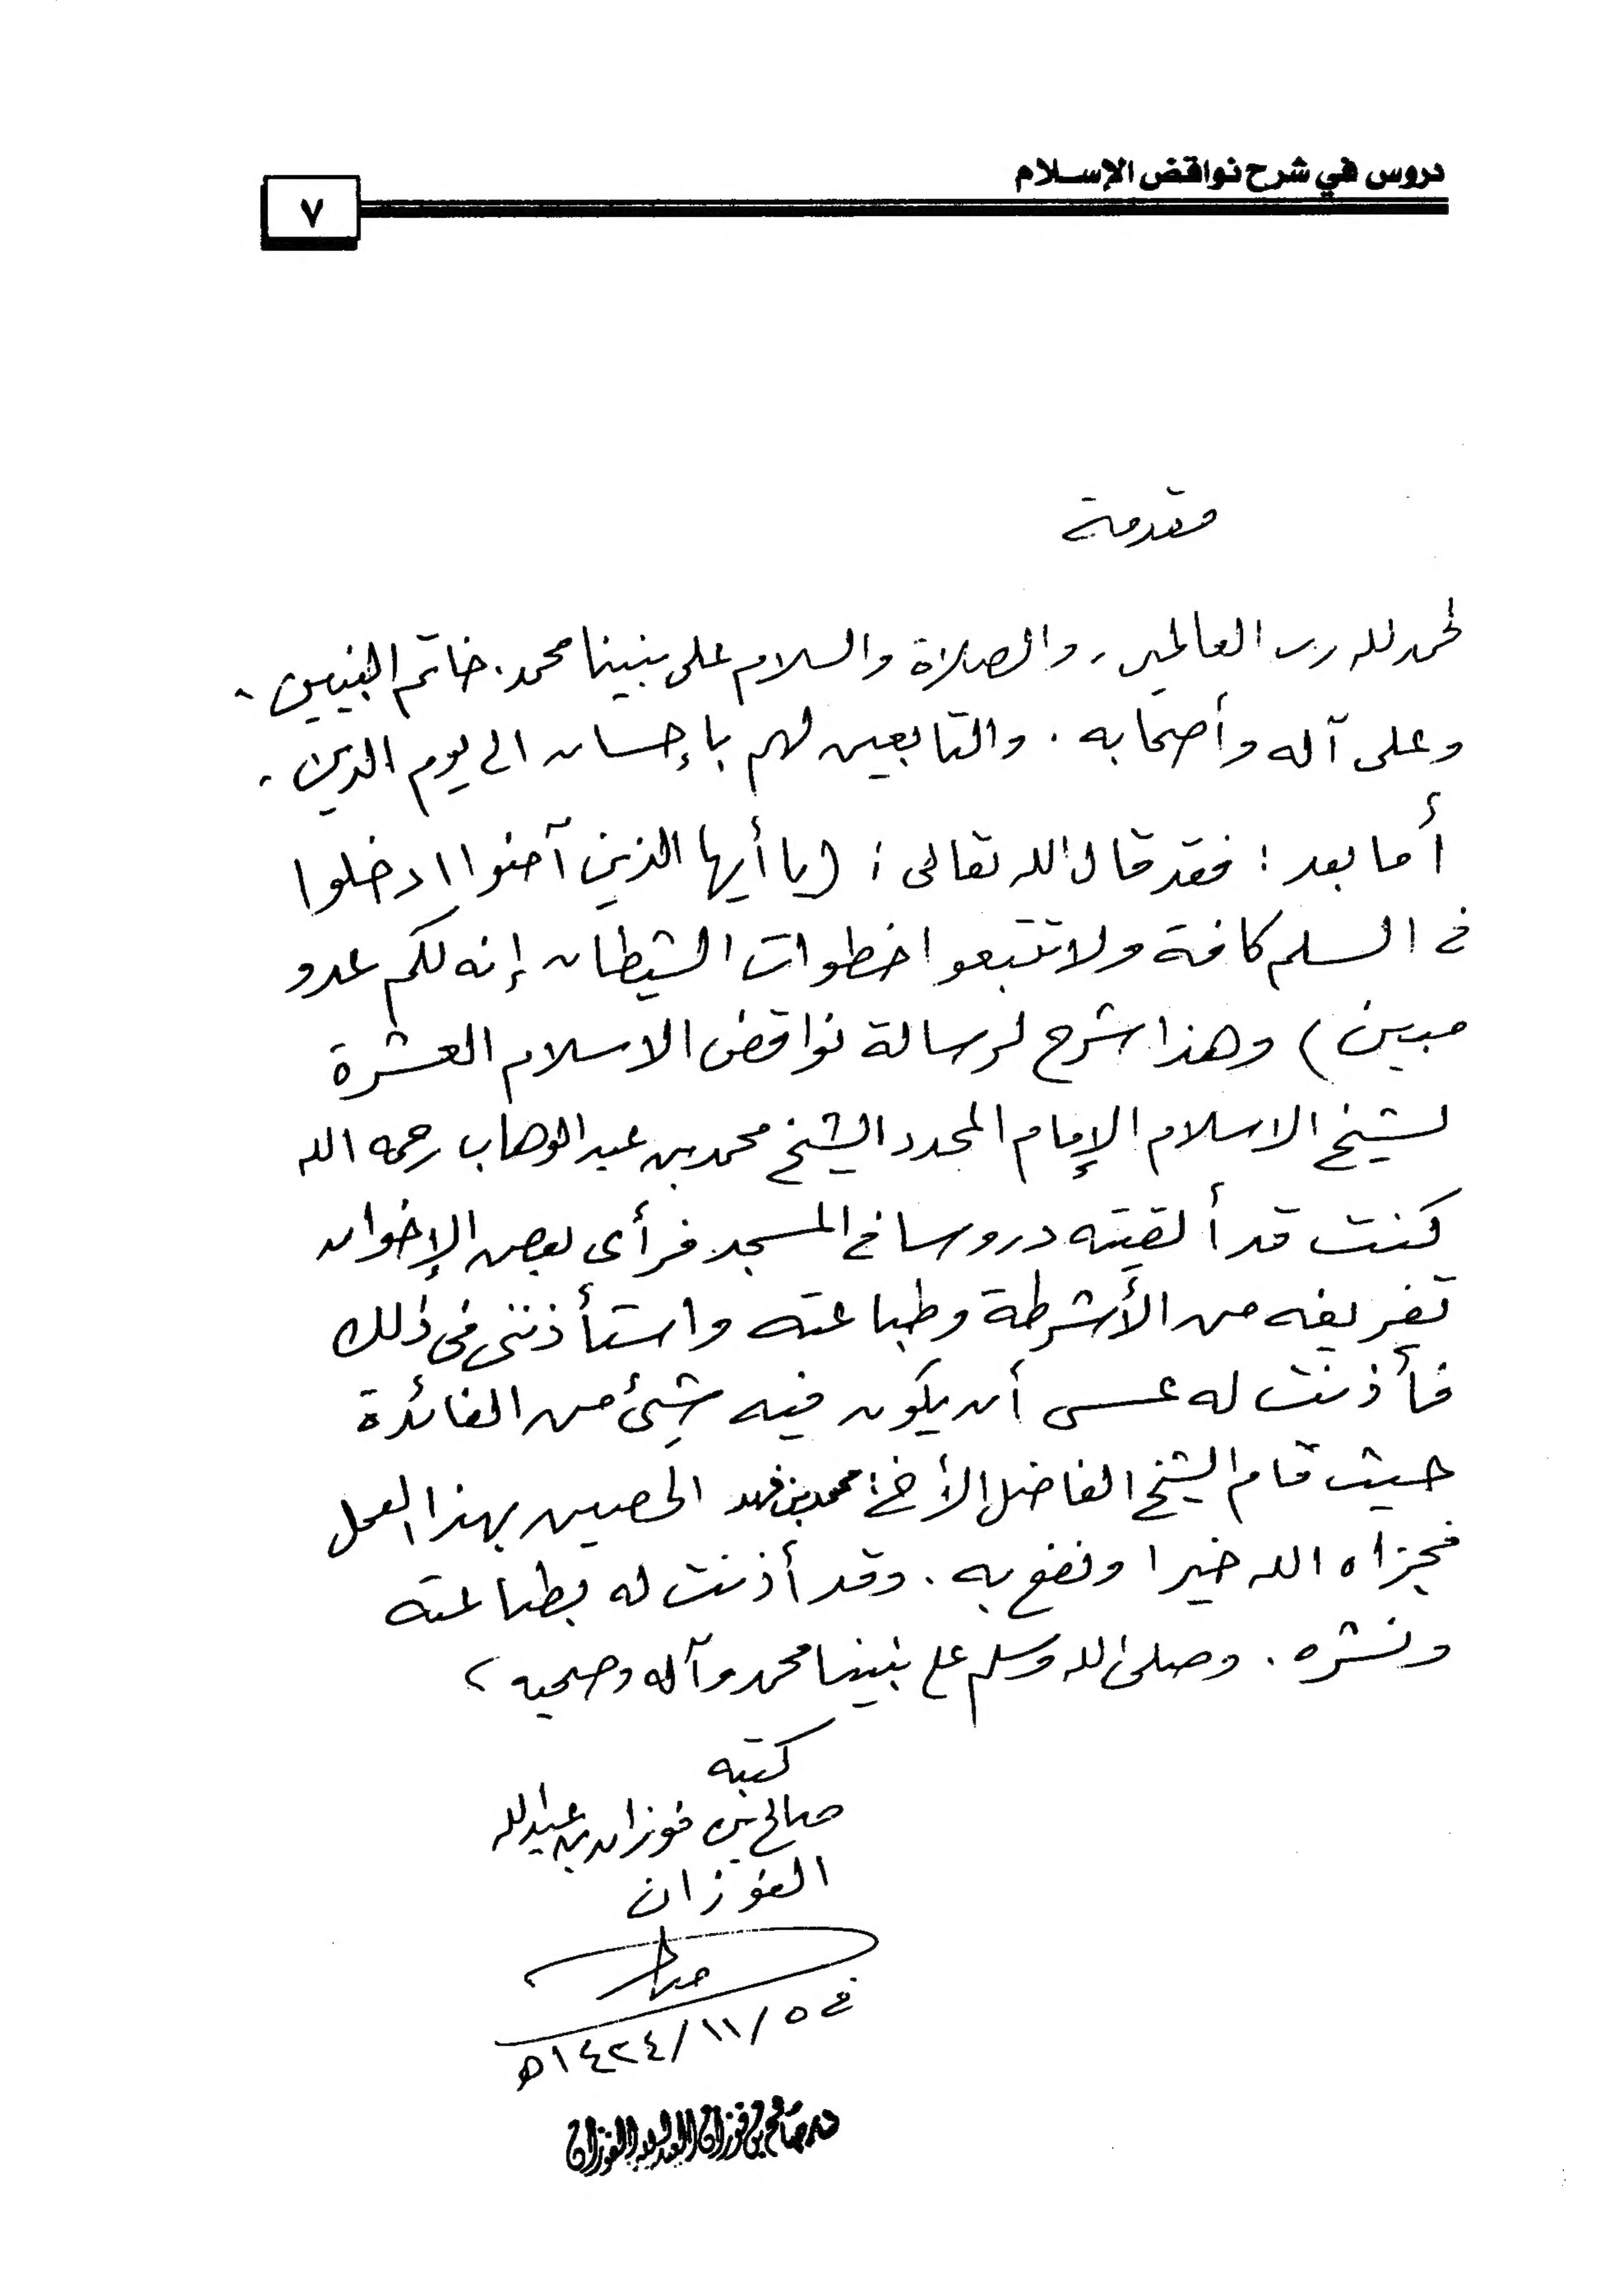 دروس في شرح نواقض الإسلام
٧
مقدمة
لحمد لله رب العالمين، والصلاة والسلام على نبينا محمد. خاتم النبيين،
وعلى آله وأصحابه. والتابعين لهم بإحسان الى يوم الدين،
أما بعد: فقد قال الله تعالى: (يا أيها الذين آمنوا ادخلوا
في السلم كافة ولا تتبعوا خطوات الشيطان إنه لكم عدو
مبين) وهذا شرح لرسالة نواقض الاسلام العشرة
لشيخ الاسلام الإمام المجدد الشيخ محمد بن عبد الوهاب رحمه الله
كنت قد ألقيته دروسا في المسجد فرأى بعض الإخوان
تفريغه من الأشرطة وطباعته واستأذنني في ذلك
فأذنت له عسى أن يكون فيه شيئ من الفائدة
حيث قام الشيخ الفاضل الأخ: محمد بن فهد الحصين بهذا العمل
فجزاه الله خيرا ونفع به. وقد أذنت له بطباعته
ونشره. وصلى الله وسلم على نبينا محمد وآله وصحبه،
كتبه
صالح بن فوزان بن عبد الله
الفوزان
في ٥/١١/١٤٢٤هـ
د. صالح بن فوزان العبد الله الفوزان